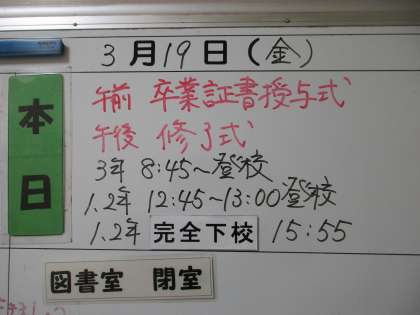 3月19日(金)
本日
午前 卒業証書授与式
午後 修了式
3年 8:45〜登校
1.2年 12:45〜13:00登校
1.2年 完全下校 15:55
図書室 閉室